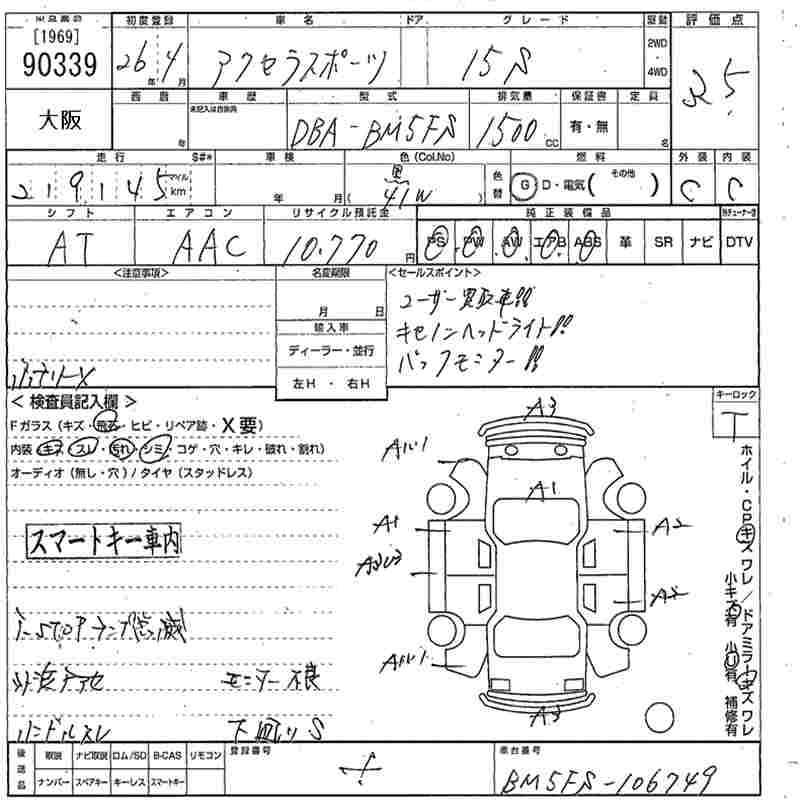 [1969]
90339
初度登録
車名
ドア
グレード
駆動
評価点
26年4月
アクセラスポーツ
15S
2WD
・
4WD
R5
大阪
西暦
車歴
型式
排気量
保証書
定員
未記入は自家用
年
DBA-BM5FS
1500cc
有・無
名
走行
S#*
車検
色(Col.No)
色替
燃料
外装
内装
219145
マイル
km
年
月
黒
41W
G D・電気(その他)
C
C
シフト
エアコン
リサイクル預託金
純正装備品
AT
AAC
10,770円
PS・PW・AW・エアB・ABS
革
SR
ナビ
DTV
<注意事項>
名変期限
<セールスポイント>
月 日
輸入車
ディーラー・並行
左H・右H
ユーザー買取車!!
キセノンヘッドライト!!
バックモニター!!
<検査員記入欄>
キーロック
T
Fガラス(キズ・飛石・ヒビ・リペア跡・X要)
内装(キズ・スレ・汚れ・シミ・コゲ・穴・キレ・破れ・割れ)
オーディオ(無し・穴)/タイヤ(スタッドレス)
スマートキー車内
モニター不良
ハンドルスレ
下廻りS
A3
A1
A1
A2
A2
A3
ホイル・CPキズワレ/ドアミラーキズワレ
小キズ有 小U有 補修有
後送品
取説
ナビ取説
ロム/SD
B-CAS
リモコン
ナンバー
スペアキー
キーレス
スマートキー
登録番号
車台番号
BM5FS-106749